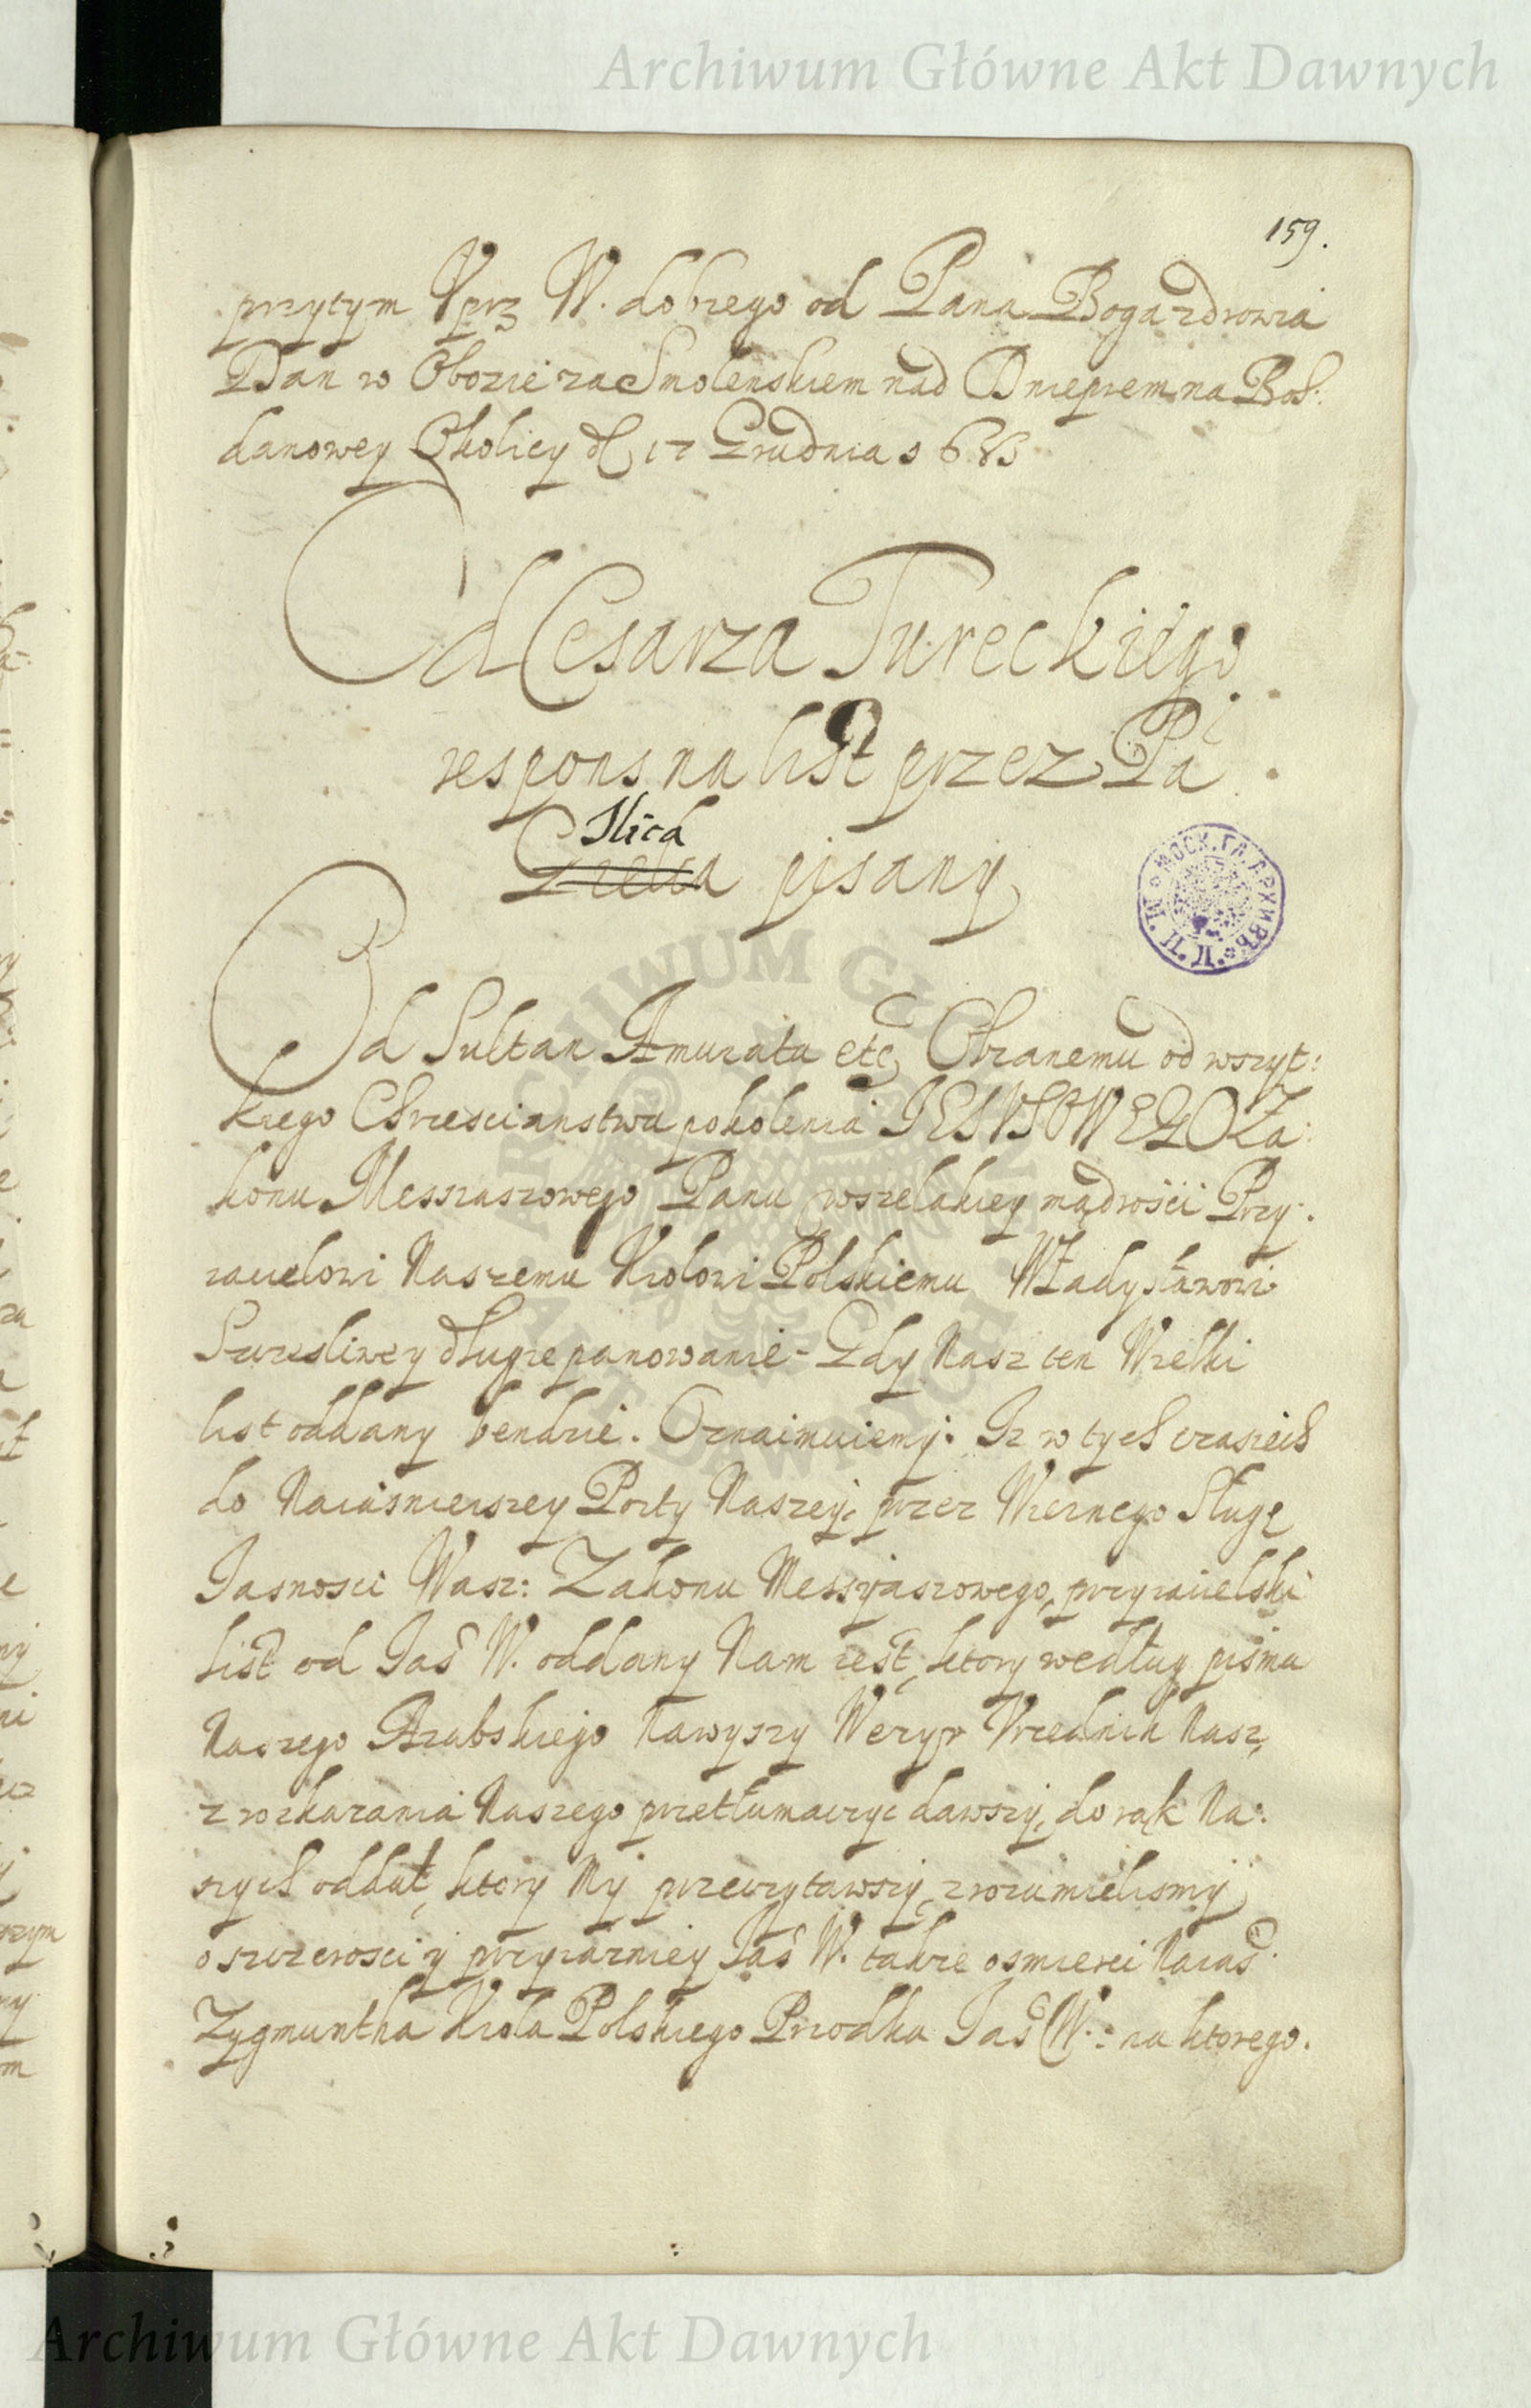 Archiwum Główne Akt Dawnych
159.
przytym Vprz W. dobrego od Pana Boga zdrowia
Dan w Obozie za Smolenskiem nad Dnieprem na Boh:
danowey Okolicy d 17 Grudnia
Od Cesarza Tureckiego
respons na list przez Pa
Ilica
Greka pisany
MOCK. ГЛ. АРХИВЪ
Od Sultan Amurata etc Obranemu od wszyt:
kiego Chrzescianstwa pokolenia IESVSOWEGO Za:
konu Messiaszowego Panu wszelakiey mądrości Przy:
iacielowi Naszemu Krolowi Polskiemu Władysławowi
Szczesliwey długie panowanie - Gdy Nasz ten Wielki
list oddany bendzie. Oznaimuiemy: Iz w tych czasiech
do Naiaśnieiszey Porty Naszey, przez Wiernego Sługę
Iasnosci Wasz: Zakonu Messyaszowego, przyiacielski
list od Jaś W. oddany Nam iest, ktory według pisma
Naszego Arabskiego Nawyszy Wezyr Vrzednik Nasz,
z rozkazania Naszego przetłumaczyc dawszy, do rąk Na:
szych oddał, ktory My przeczytawszy, zrozumielismy
o szczerosci y przyiazniey Jaś W. takze o smierci Naiaś:
Zygmuntha Krola Polskiego Przodka Jaś W.: na ktorego.
ARCHIWUM GŁÓWNE AKT DAWNYCH
Archiwum Główne Akt Dawnych